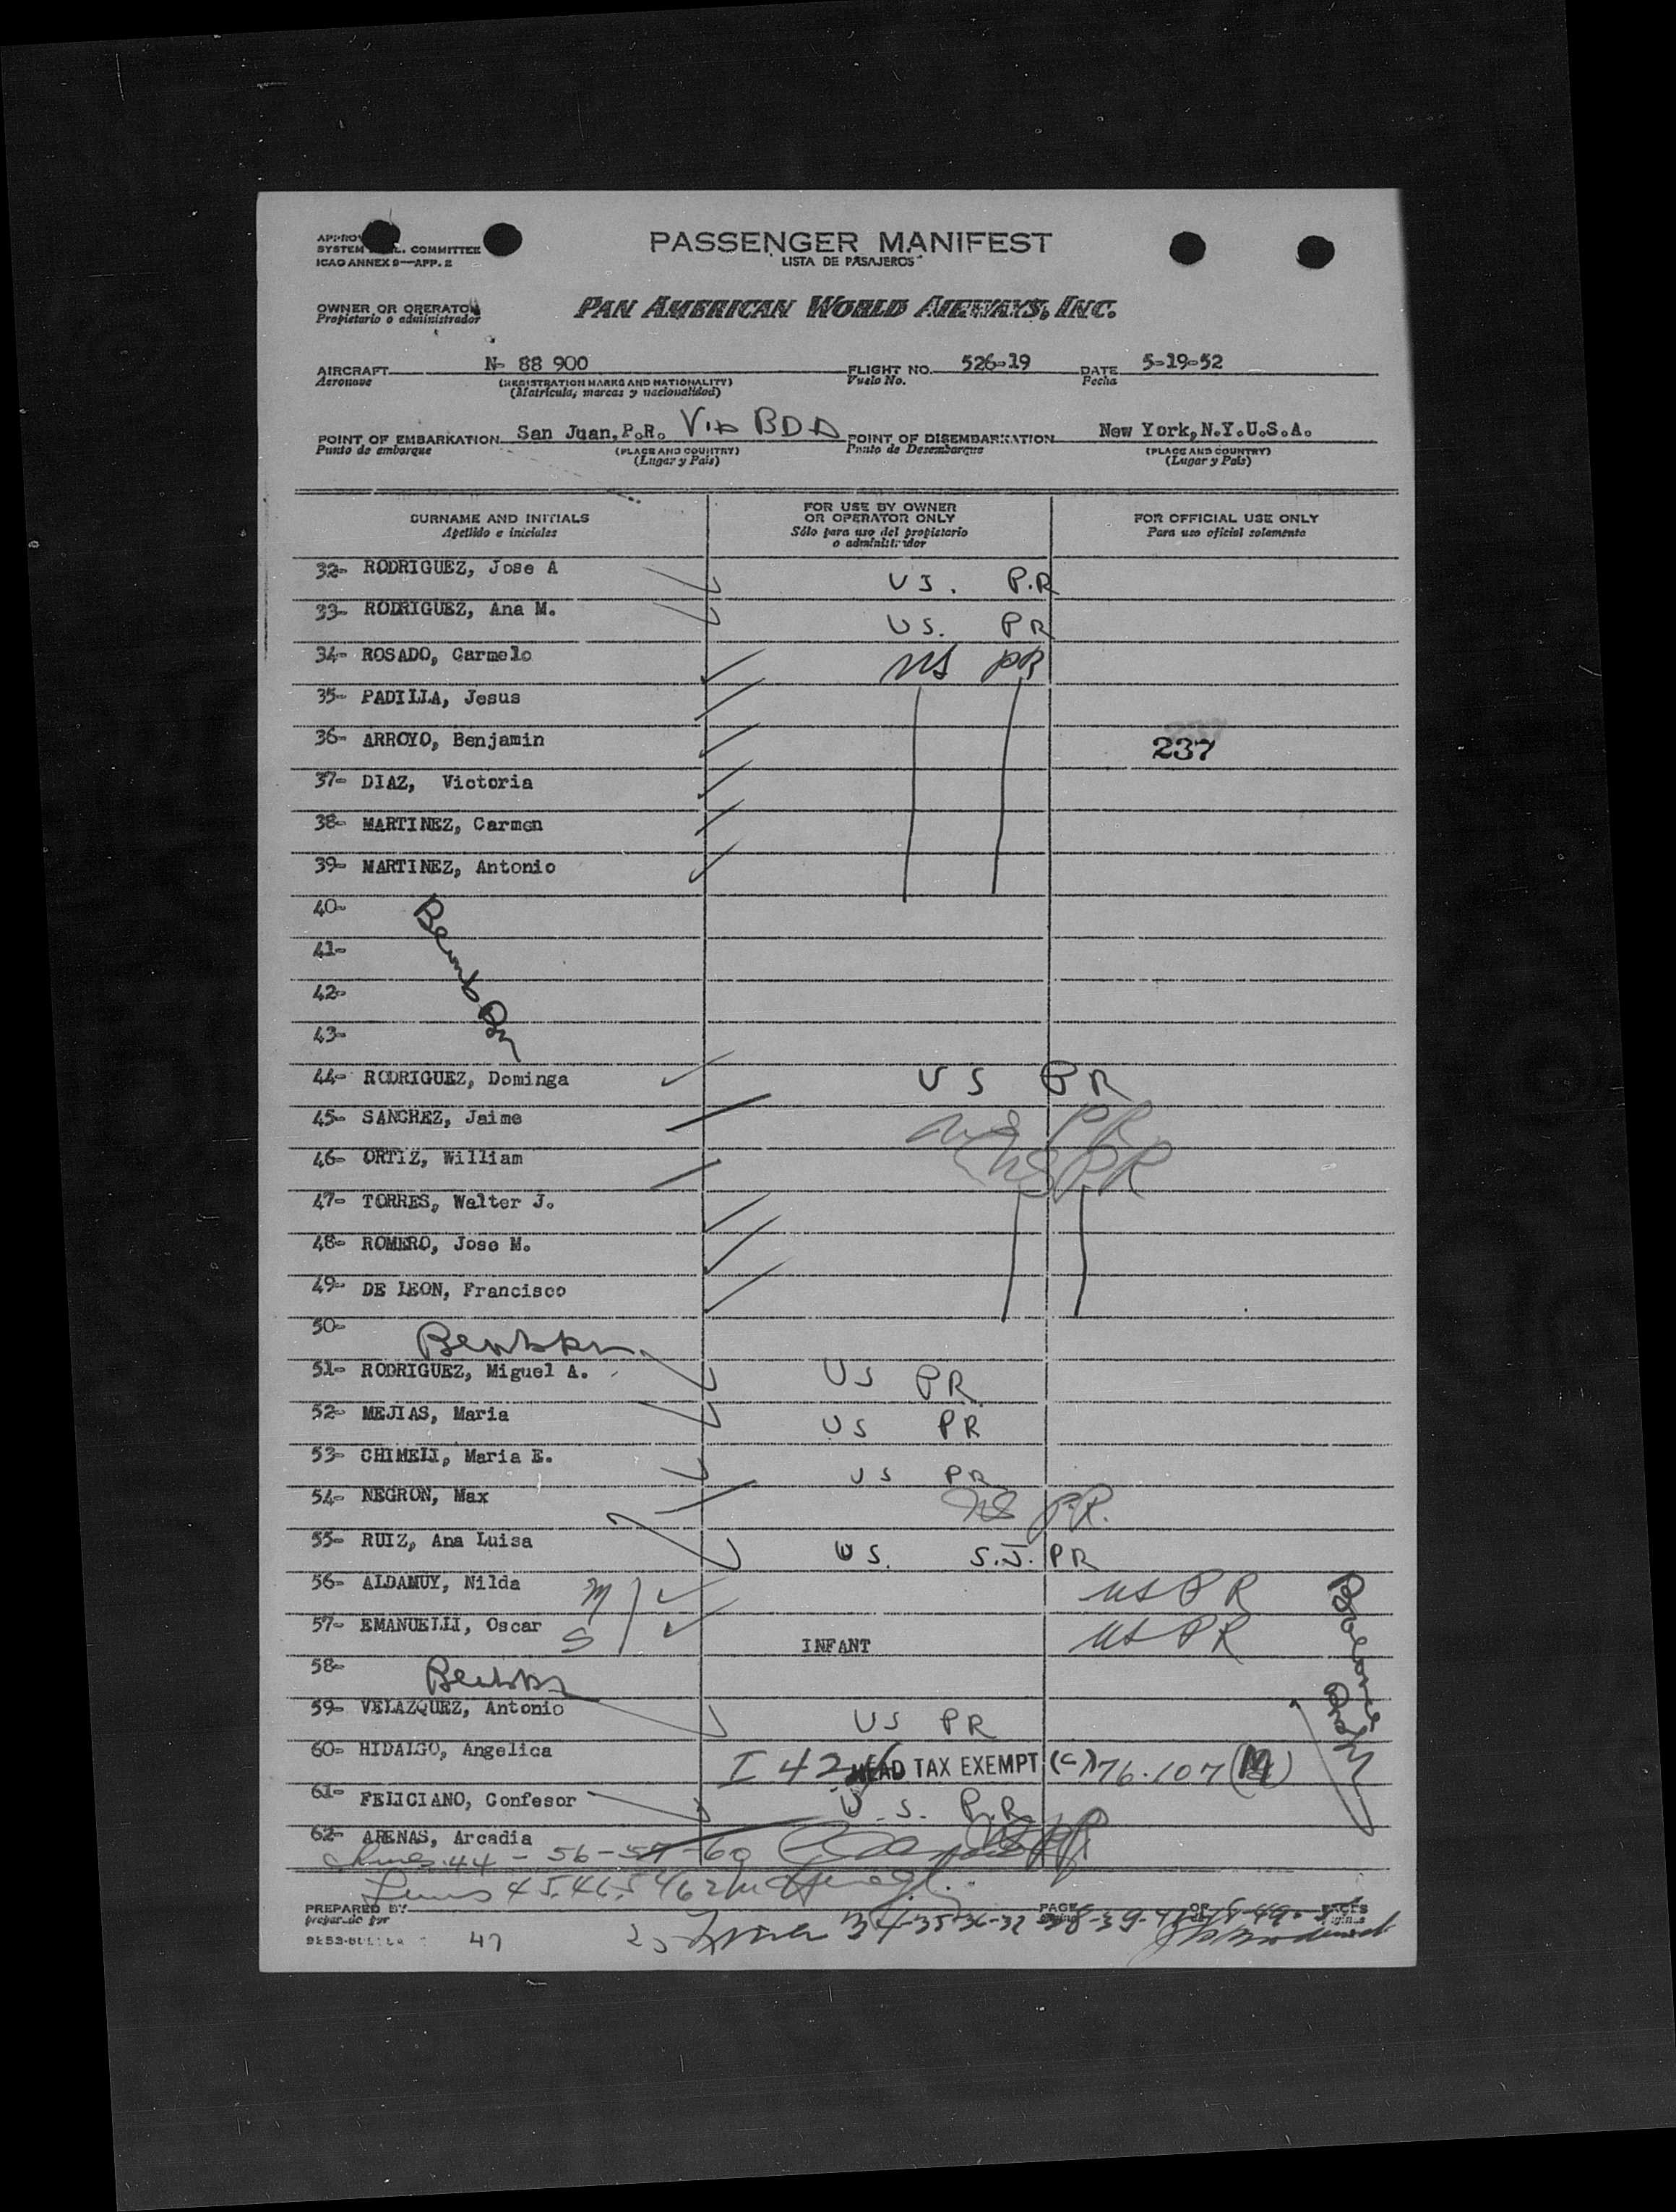 PASSENGER MANIFEST
LISTA DE PASAJEROS
SYSTEM COMMITTEE
ICAO ANNEX 9—APP. 2
OWNER OR OPERATOR PAN AMERICAN WORLD AIRWAYS, INC.
Propietario o administrador
AIRCRAFT N- 88 900 FLIGHT NO. 526-19 DATE 5-19-52
Aeronave (REGISTRATION MARKS AND NATIONALITY) Vuelo No. Fecha
(Matrícula, marcas y nacionalidad)
POINT OF EMBARKATION San Juan, P.R. Via BDA POINT OF DISEMBARKATION New York, N.Y. U.S.A.
Punto de embarque (PLACE AND COUNTRY) Punto de Desembarque (PLACE AND COUNTRY)
(Lugar y País) (Lugar y País)
SURNAME AND INITIALS FOR USE BY OWNER OR OPERATOR ONLY FOR OFFICIAL USE ONLY
Apellido e iniciales Sólo para uso del propietario o administrador Para uso oficial solamente
32- RODRIGUEZ, Jose A US. P.R
33- RODRIGUEZ, Ana M. US. PR
34- ROSADO, Carmelo US PR
35- PADILLA, Jesus
36- ARROYO, Benjamin 237
37- DIAZ, Victoria
38- MARTINEZ, Carmen
39- MARTINEZ, Antonio
40-
41-
42-
43-
44- RODRIGUEZ, Dominga US PR
45- SANCHEZ, Jaime US PR
46- ORTIZ, William US PR
47- TORRES, Walter J.
48- ROMERO, Jose M.
49- DE LEON, Francisco
50-
51- RODRIGUEZ, Miguel A. US PR
52- MEJIAS, Maria US PR
53- CHIMELI, Maria E. US PR
54- NEGRON, Max US P.R.
55- RUIZ, Ana Luisa US. S.J. PR
56- ALDAMUY, Nilda M US PR
57- EMANUELLI, Oscar S INFANT US PR
58-
59- VELAZQUEZ, Antonio US PR
60- HIDALGO, Angelica I 424 HEAD TAX EXEMPT (C) 176.107 (M)
61- FELICIANO, Confesor U.S. P.R
62- ARENAS, Arcadia
44 - 56 - 57 - 60
PREPARED BY PAGE OF PAGES
47